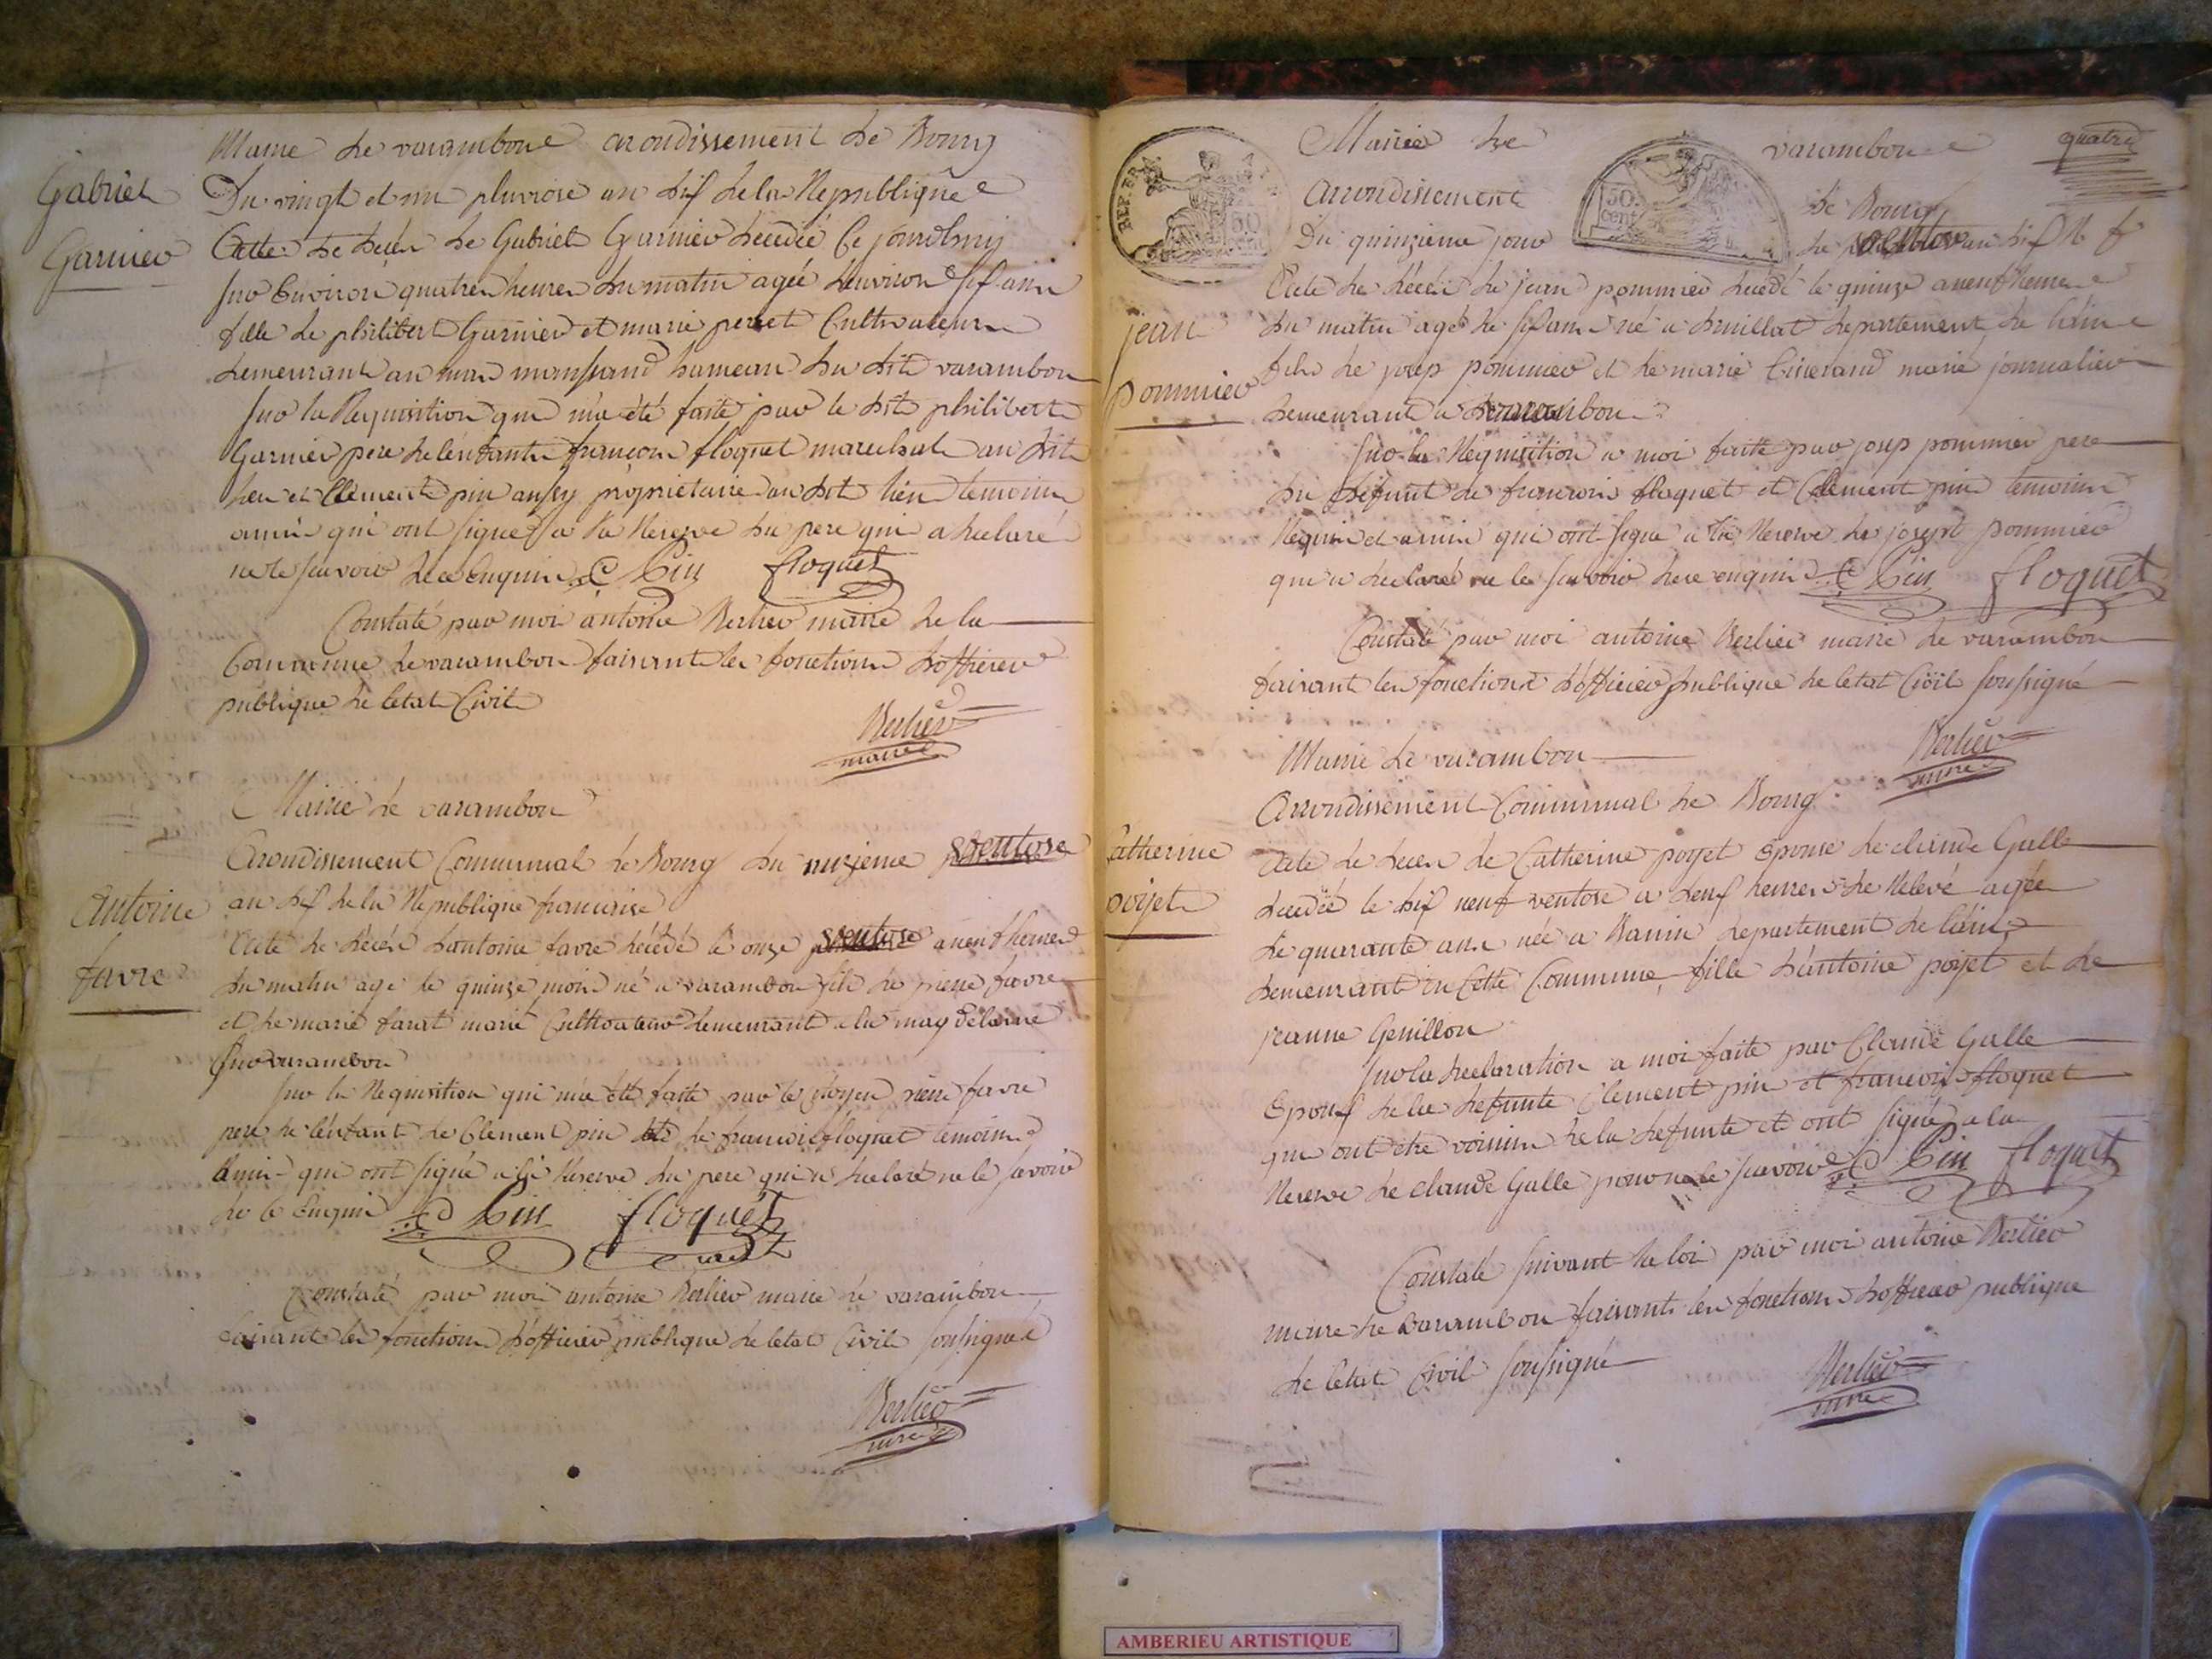 Gabriel
Garnier
Mairie de varambon arondissement de Bourg
Du vingt et un pluviose an dix de la Republique
Acte de décés de Gabriel Garnier decedée Ce jourdhuy
sur Environ quatres heures du matin agée denviron six ans
fille de philibert Garnier et marie perret Cultivateurs
demeurant au hameau du dit varambon
sur la Requisition qui m'a été faite par le dit philibert
Garnier pere de l'enfant françois floquet marechal au dit
lieu et Clement pin aussy propriétaire au dit lieu temoins
amis qui ont signé a la Reserve du pere qui a declaré
ne le savoir de ce Enquis C Pin floquet
Constaté par moi antoine Verlier maire de la
Commune de varambon faisant les fonctions dofficier
publique de letat Civil
Verlier
maire
Mairie de varambon
antoine
favre
Arondissement Communal de Bourg du onzieme ventose
an dix de la Republique francaise
Acte de décés dantoine favre décédé le onze ventose a neuf heures
du matin age de quinze mois né a varambon fils de pierre favre
et de marie farat marié Cultivateur demeurant a la magdelaine
sur varambon
sur la Requisition qui m'a été faite par le citoyen pierre favre
pere de l'enfant de Clement pin et de francois floquet temoins
amis qui ont signé a la Reserve du pere qui a declaré ne le savoir
de ce Enquis C Pin floquet
Constaté par moi antoine Verlier maire de varambon
faisant les fonctions d'officier publique de letat Civil soussigné
Verlier
maire
quatre
REP. FRA.
50 cent
50. cent
Mairie de varambon
arrondissement de Bourg
Du quinzieme jour de ventose an dix R f
jean
pommier
Acte de décés de jean pommier decédé le quinze a neuf heures
du matin agé de six ans né a druillat departement de lain
fils de josep pommier et de marie marié journalier
demeurant a varambon
sur la Requisition a moi faitte par josep pommier pere
du defunt de francois floquet et Clement pin temoins
Requis et amis qui ont signé a la Reserve de joseph pommier
qui a declaré ne le savoir de ce enquis C Pin floquet
Constaté par moi antoine Verlier maire de varambon
faisant les fonctions d'officier publique de letat Civil soussigné
Verlier
maire
Mairie de varambon
Arrondissement Communal de Bourg
Catherine
poyet
Acte de deces de Catherine poyet Epouse de claude Galle
decedée le dix neuf ventose a deux heures de Relevé agée
de quarante ans née a departement de lain
demeurant en Cette Commune fille d'antoine poyet et de
jeanne Genillon
sur la declaration a moi faite par Claude Galle
Epoux de la defunte Clement pin et francois floquet
qui ont etre voisins de la defunte et ont signé a la
Reserve de claude Galle pour ne le savoir C Pin floquet
Constaté suivant la loi par moi antoine Verlier
maire de varambon faisant les fonctions d'officier publique
de letat Civil soussigné
Verlier
maire
AMBERIEU ARTISTIQUE